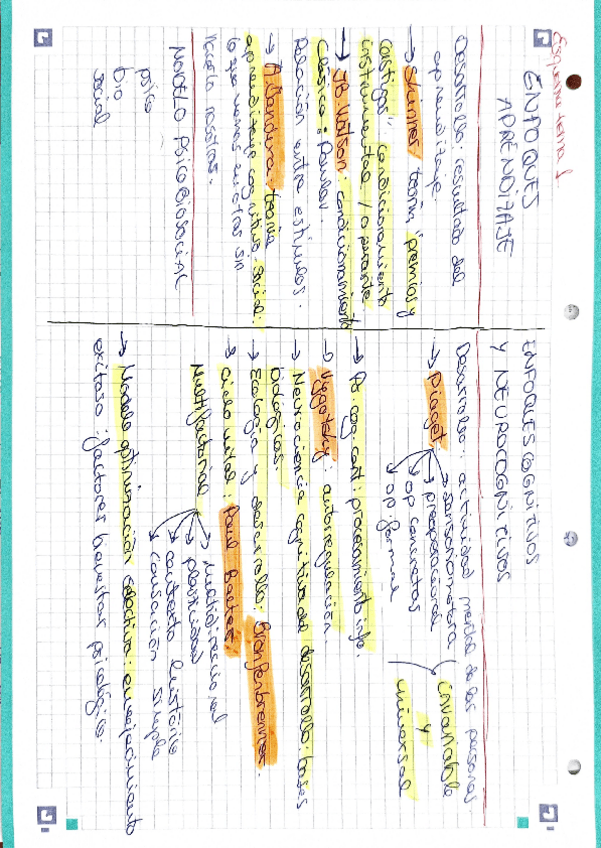 Esquema tema 1
ENFOQUES
APRENDIZAJE
Desarrollo: resultado del
aprendizaje.
→ Skinner: teoría "premios y
castigos" condicionamiento
instrumental / operante
→ JB Watson: condicionamiento
Clásico: Paulov.
Relación entre estímulos.
→ A. Bandura: teoría
aprendizaje cognitivo social:
lo que vemos en otros sin
hacerlo nosotros.
MODELO PSICOBIOSOCIAL
psico
bio
social
ENFOQUES COGNITIVOS
Y NEUROCOGNITIVOS
Desarrollo: actividad mental de las personas.
→ Piaget
sensoriomotora
preoperacional
op concretas
op formal
invariable
y
universal
→ Ps. cog. cont: procesamiento info.
→ Vygotsky: autorregulación.
→ Neurociencia cognitiva del desarrollo: bases
biológicas.
→ Ecología y desarrollo: Bronfenbrenner.
→ Ciclo vital: Paul Baltes:
Multifactorial
multidireccional
plasticidad
contexto histórico
causación simple
→ Modelo optimización selectiva: envejecimiento
exitoso: factores bienestar psicológico.